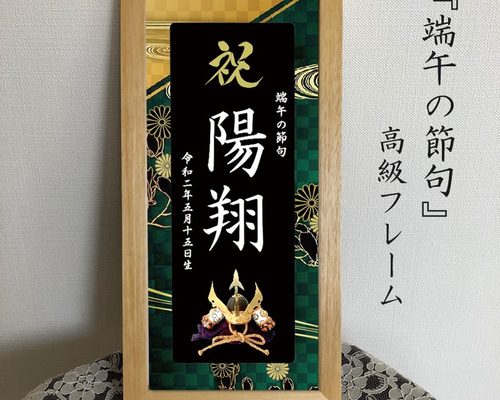 『端午の節句』
高級フレーム
祝
端午の節句
陽翔
令和二年五月十五日生